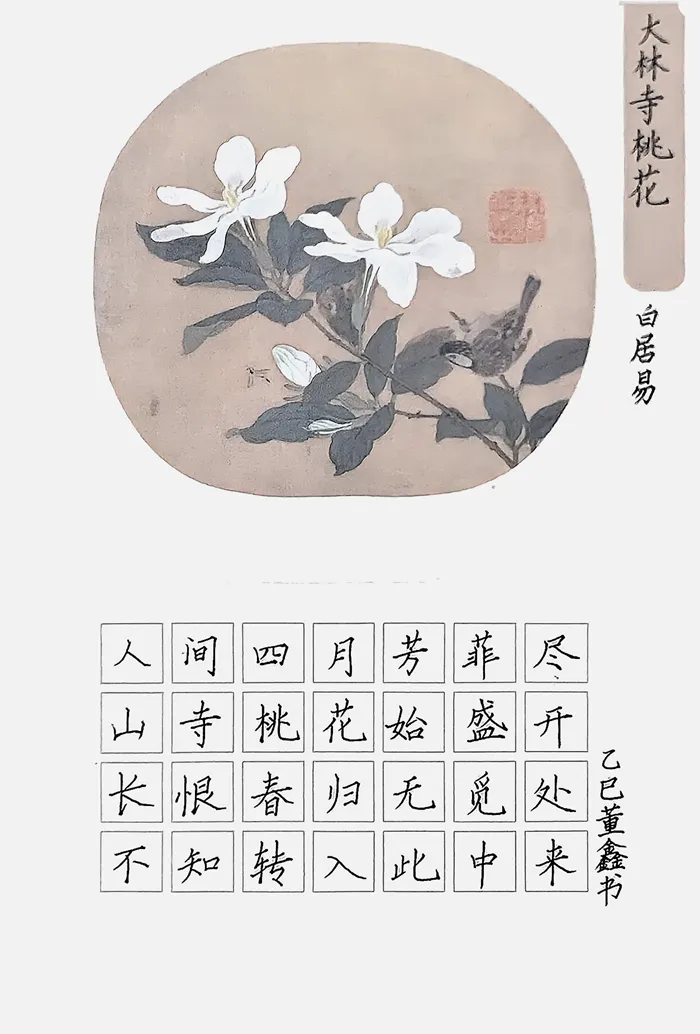 大林寺桃花
白居易
人间四月芳菲尽
山寺桃花始盛开
长恨春归无觅处
不知转入此中来
乙巳董鑫书